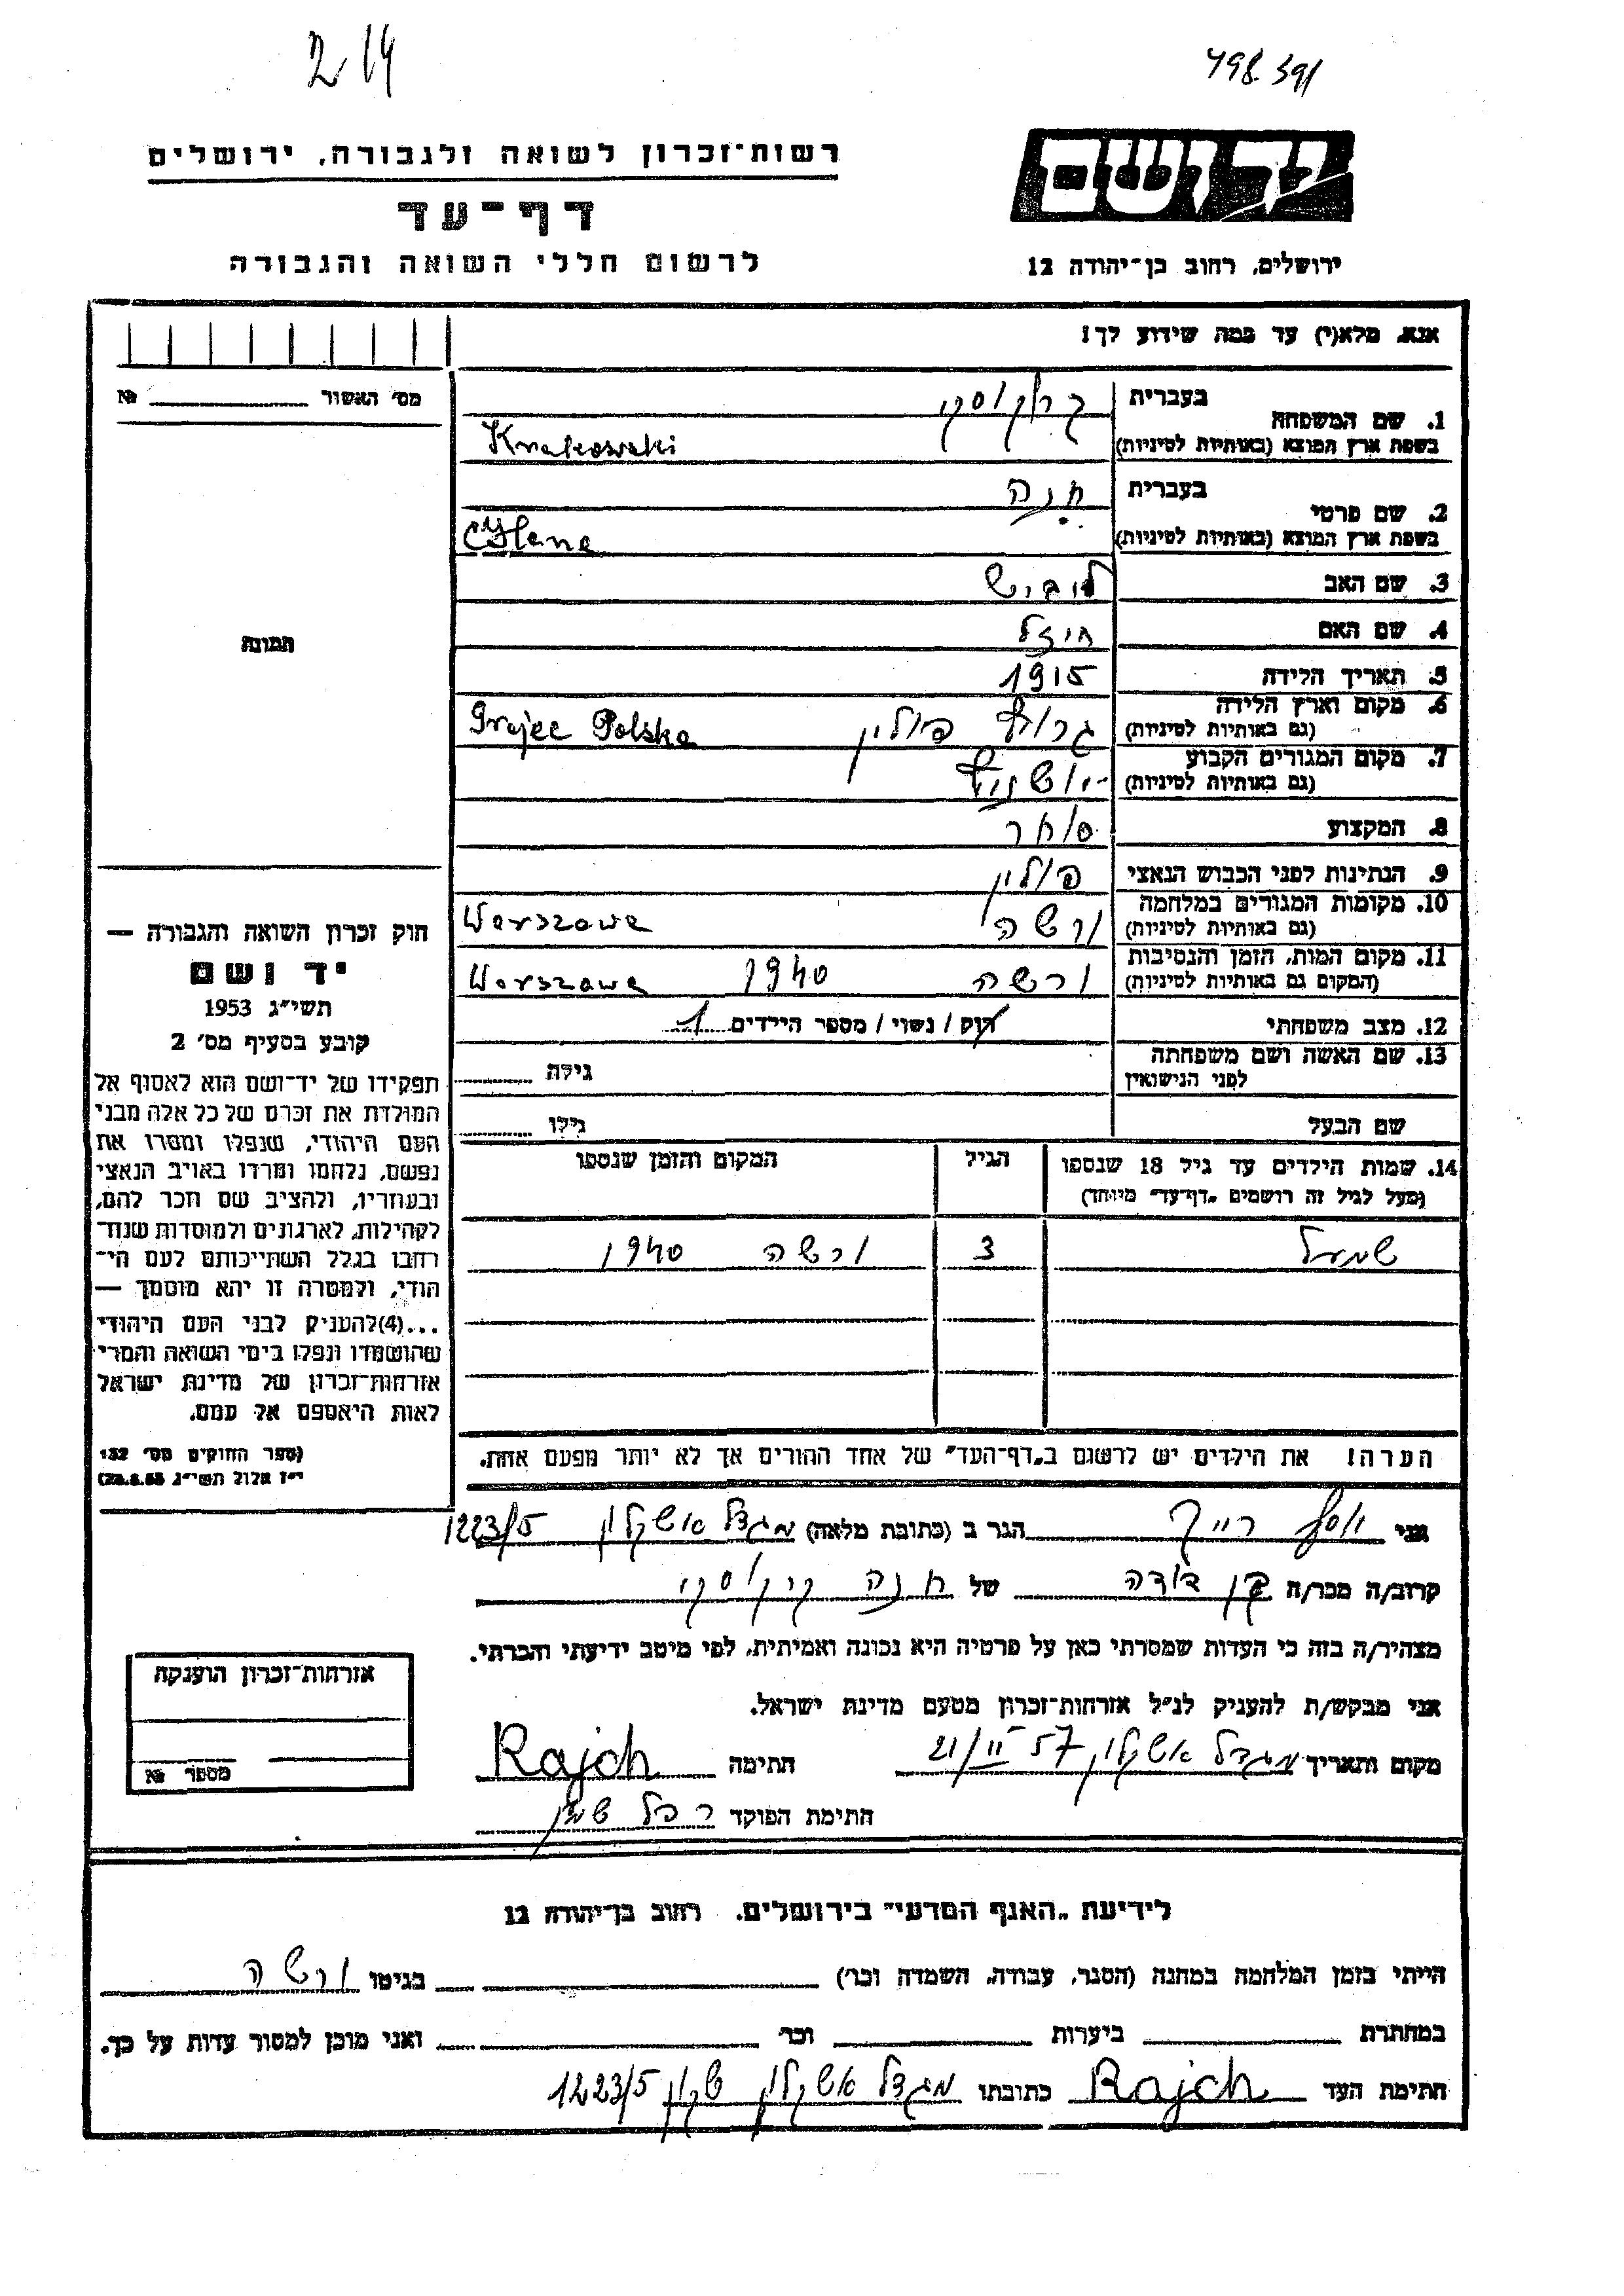 2 14
498.391
רשות־זכרון לשואה ולגבורה, ירושלים
יד ושם
דף־עד
לרשום חללי השואה והגבורה
ירושלים, רחוב בן־יהודה 12
אנא, מלא(י) עד כמה שידוע לך!
מס׳ האשור № 
1. שם המשפחה בעברית קרקוסקי
בשפת ארץ המוצא (באותיות לטיניות) Krakowski
2. שם פרטי בעברית חנה
בשפת ארץ המוצא (באותיות לטיניות) CHana
3. שם האב לוביש
4. שם האם
5. תאריך הלידה 1915
6. מקום וארץ הלידה (גם באותיות לטיניות) פולין Grojec Polska
7. מקום המגורים הקבוע (גם באותיות לטיניות)
8. המקצוע סוחר
9. הנתינות לפני הכבוש הנאצי פולין
10. מקומות המגורים במלחמה (גם באותיות לטיניות) ורשה Warszawa
11. מקום המות, הזמן והנסיבות (המקום גם באותיות לטיניות) ורשה 1940 Warszawa
12. מצב משפחתי רוק / נשוי / מספר הילדים 1
13. שם האשה ושם משפחתה לפני הנישואין גילה
שם הבעל גילו
14. שמות הילדים עד גיל 18 שנספו (מעל לגיל זה רושמים „דף־עד” מיוחד) הגיל המקום והזמן שנספו
שמואל 3 ורשה 1940
הערה! את הילדים יש לרשום ב„דף־העד” של אחד ההורים אך לא יותר מפעם אחת.
תמונה
חוק זכרון השואה והגבורה —
יד ושם
תשי״ג 1953
קובע בסעיף מס׳ 2
תפקידו של יד־ושם הוא לאסוף אל
המולדת את זכרם של כל אלה מבני
העם היהודי, שנפלו ומסרו את
נפשם, נלחמו ומרדו באויב הנאצי
ובעוזריו, ולהציב שם וזכר להם,
לקהילות, לארגונים ולמוסדות שנח־
רבו בגלל השתייכותם לעם הי־
הודי, ולמטרה זו יהא מוסמך —
...(4) להעניק לבני העם היהודי
שהושמדו ונפלו בימי השואה והמרי
אזרחות־זכרון של מדינת ישראל
לאות היאספם אל עמם.
(ספר החוקים מס׳ 132
י״ז אלול תשי״ג 28.8.53)
אני יוסף רייך הגר ב (כתובת מלאה) מגדל אשקלון 1223/5
קרוב/ה מכר/ה בן דודה של חנה קרקוסקי
מצהיר/ה בזה כי העדות שמסרתי כאן על פרטיה היא נכונה ואמיתית, לפי מיטב ידיעתי והכרתי.
אני מבקש/ת להעניק לנ״ל אזרחות־זכרון מטעם מדינת ישראל.
מקום ותאריך מגדל אשקלון 21/II 57 חתימה Rajch
חתימת הפוקד
אזרחות־זכרון הוענקה
מספר №
לידיעת „האגף המדעי” בירושלים, רחוב בן־יהודה 12
הייתי בזמן המלחמה במחנה (הסגר, עבודה, השמדה וכו׳) בגיטו ורשה
במחתרת ביערות וכו׳ ואני מוכן למסור עדות על כך.
חתימת העד Rajch כתובתו מגדל אשקלון שכון 1223/5